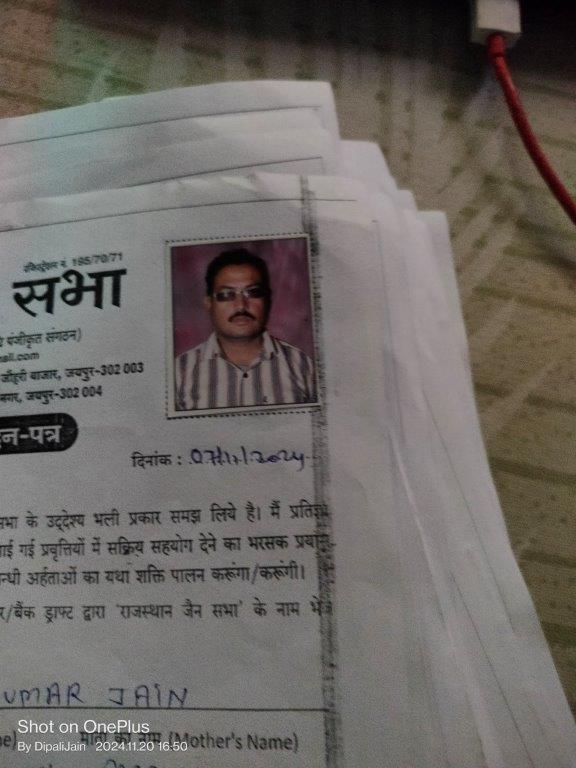 रजिस्ट्रेशन नं. 195/70/71
सभा
पंजीकृत संगठन)
ail.com
जौहरी बाजार, जयपुर-302 003
नगर, जयपुर-302 004
न-पत्र
दिनांक :
सभा के उद्देश्य भली प्रकार समझ लिये है। मैं प्रतिज्ञा
ाई गई प्रवृत्तियों में सक्रिय सहयोग देने का भरसक प्रयास
न्धी अर्हताओं का यथा शक्ति पालन करूंगा/करूंगी।
र/बैंक ड्राफ्ट द्वारा 'राजस्थान जैन सभा' के नाम भेज
UMAR JAIN
माता का नाम (Mother's Name)
Shot on OnePlus
By DipaliJain 2024.11.20 16:50